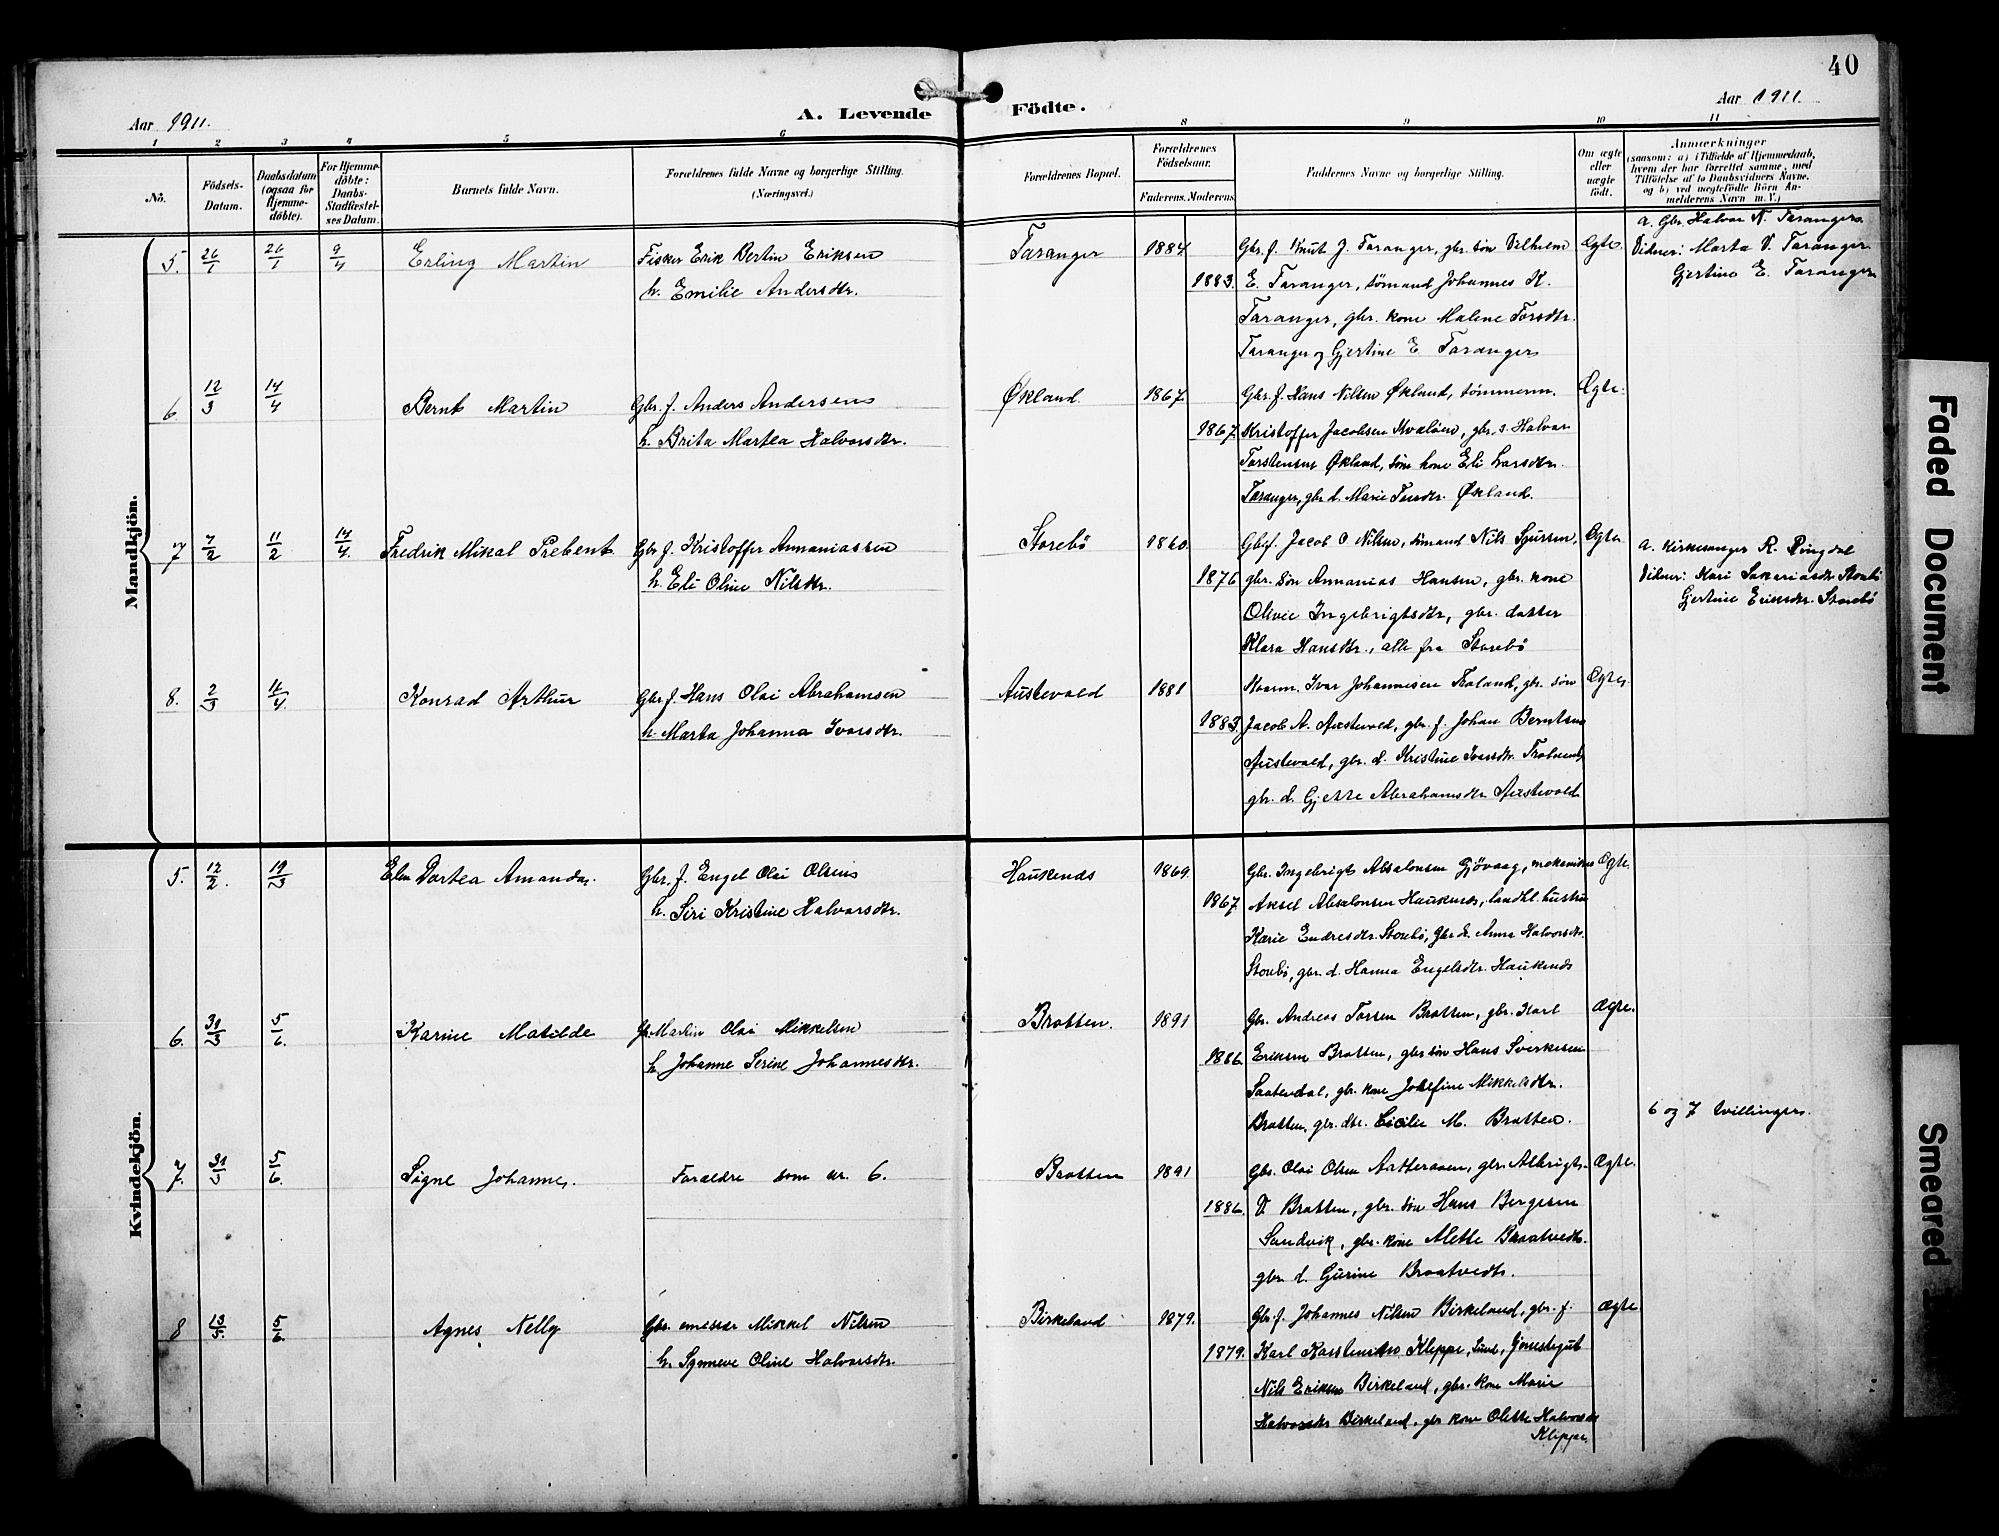 40
Aar 1911.
A. Levende Födte.
Aar 1911.
1 2 3 4 5 6 8 9 10 11
No.
Födsels-Datum.
Daabsdatum (ogsaa for Hjemme-döbte).
For Hjemme-döbte: Daabs-Stadfæstel-ses Datum.
Barnets fulde Navn.
Forældrenes fulde Navne og borgerlige Stilling. (Næringsvei.)
Forældrenes Bopæl.
Forældrenes Födselsaar.
Faderens. Moderens.
Faddernes Navne og borgerlige Stilling.
Om ægte eller uægte födt.
Anmærkninger
(saasom: a) i Tilfælde af Hjemmedaab,
hvem der har forrettet samme, med
Tilföielse af to Daabsvidners Navne,
og b) ved uægtefödte Börn An-
melderens Navn m. V.)
Mandkjön.
5. 26/1 26/1 9/4 Erling Martin
Fisker Erik Bertin Eriksen
h. Emilie Andersdtr.
Taranger 1884
1883.
Gbr. f. Knut J. Taranger, gbr. søn Vilhelm
E. Taranger, sømand Johannes K.
Taranger, gbr. kone Malene Torsdtr.
Taranger og Gjertine E Taranger
Ægte.
a. Gbr. Halvor N. Taranger
Vidner: Marta V. Taranger
Gjertine E. Taranger
6. 12/3 14/4 Bernt Martin
Gbr. f. Anders Andersen
h. Brita Martea Halvorsdtr.
Økland. 1867
1867.
Gbr. f. Hans Nilsen Økland, tømmerm.
Kristoffer Jacobsen, gbr. s. Halvor
Torstensen Økland, søm. kone Eli Larsdtr.
Taranger, gbr. d. Marie Økland.
Ægte.
7 7/2 11/2 17/4. Fredrik Mikal Prebent
Gbr. f. Kristoffer Annaniassen
h. Eli Oline Nilsdtr.
Storebø 1860.
1876
Gbr. f. Jacob O Nilsen, sømand Nils
gbr. søn Annanias Hansen, gbr. kone
Olivie Ingebrigtsdtr, gbr. datter
Klara Hansdtr., alle fra Storebø
Ægte
a. Kirkesanger R. Ringdal
Vidner: Kari Sakariasdtr Storebø
Gjertine Eriksdtr. Storebø
8. 2/3 16/4. Konrad Arthur
Gbr. f. Hans Olai Abrahamsen
h. Marta Johanna Ivarsdtr.
Austevold 1881
1883.
Ivar Johannesen Troland, gbr. søn
Jacob A. Austevold, gbr. f. Johan Berntsen
Austevold, gbr. d. Kristine Ivarsdtr.
gbr. d. Abrahamsdtr Austevold
Ægte
Kvindekjön.
5. 12/2. 19/3 Dortea Amanda.
Gbr. f. Engel Olai Olsen
h. Siri Kristine Halvorsdtr.
Haukenæs 1869.
1867.
Gbr. Ingebrigt Absalonsen Gjøvaag, mekaniker
Aksel Absalonsen Haukenæs, landhl. hustru
Karie Endresdtr. Storebø, gbr. d. Anna Halvorsdtr.
Storebø, gbr. d. Hanna Engelsdtr. Haukenæs
Ægte
6. 31/3 5/6. Karine Matilde
Gb. Martin Olai Mikkelsen
h. Johanne Serine Johannesdtr.
Bratten. 1891
1886.
Gbr. Andreas Torsen Bratten, gbr. Karl
Eriksen Bratten, gbr. søn Hans Sverkesen
gbr. kone Josefine Mikkelsdtr.
Bratten, gbr. dtr. Cicilie M. Bratten.
Ægte.
6 og 7 tvillinger.
7. 31/3 5/6. Signe Johanne.
Forældre som nr. 6.
Bratten 1891
1886.
Gbr. Olai Olsen, gbr. Albrigt
V Bratten, gbr. søn Hans Bergesen
Sandvik, gbr. kone Alette
gbr. d. Gurine
Ægte.
8 13/5. 5/6. Agnes Nelly
Gbr. Mikkel Nilsen
h. Synneve Oline Halvorsdtr.
Birkeland 1879.
1879.
Gbr. f. Johannes Nilsen Birkeland, gbr. f.
Karl Karstensen Kleppe,
Nils Eriksen Birkeland, gbr. kone Marie
Halvorsdtr Birkeland, gbr kone Olette Halvorsdtr
Kleppe
Ægte
Faded Document
Smeared